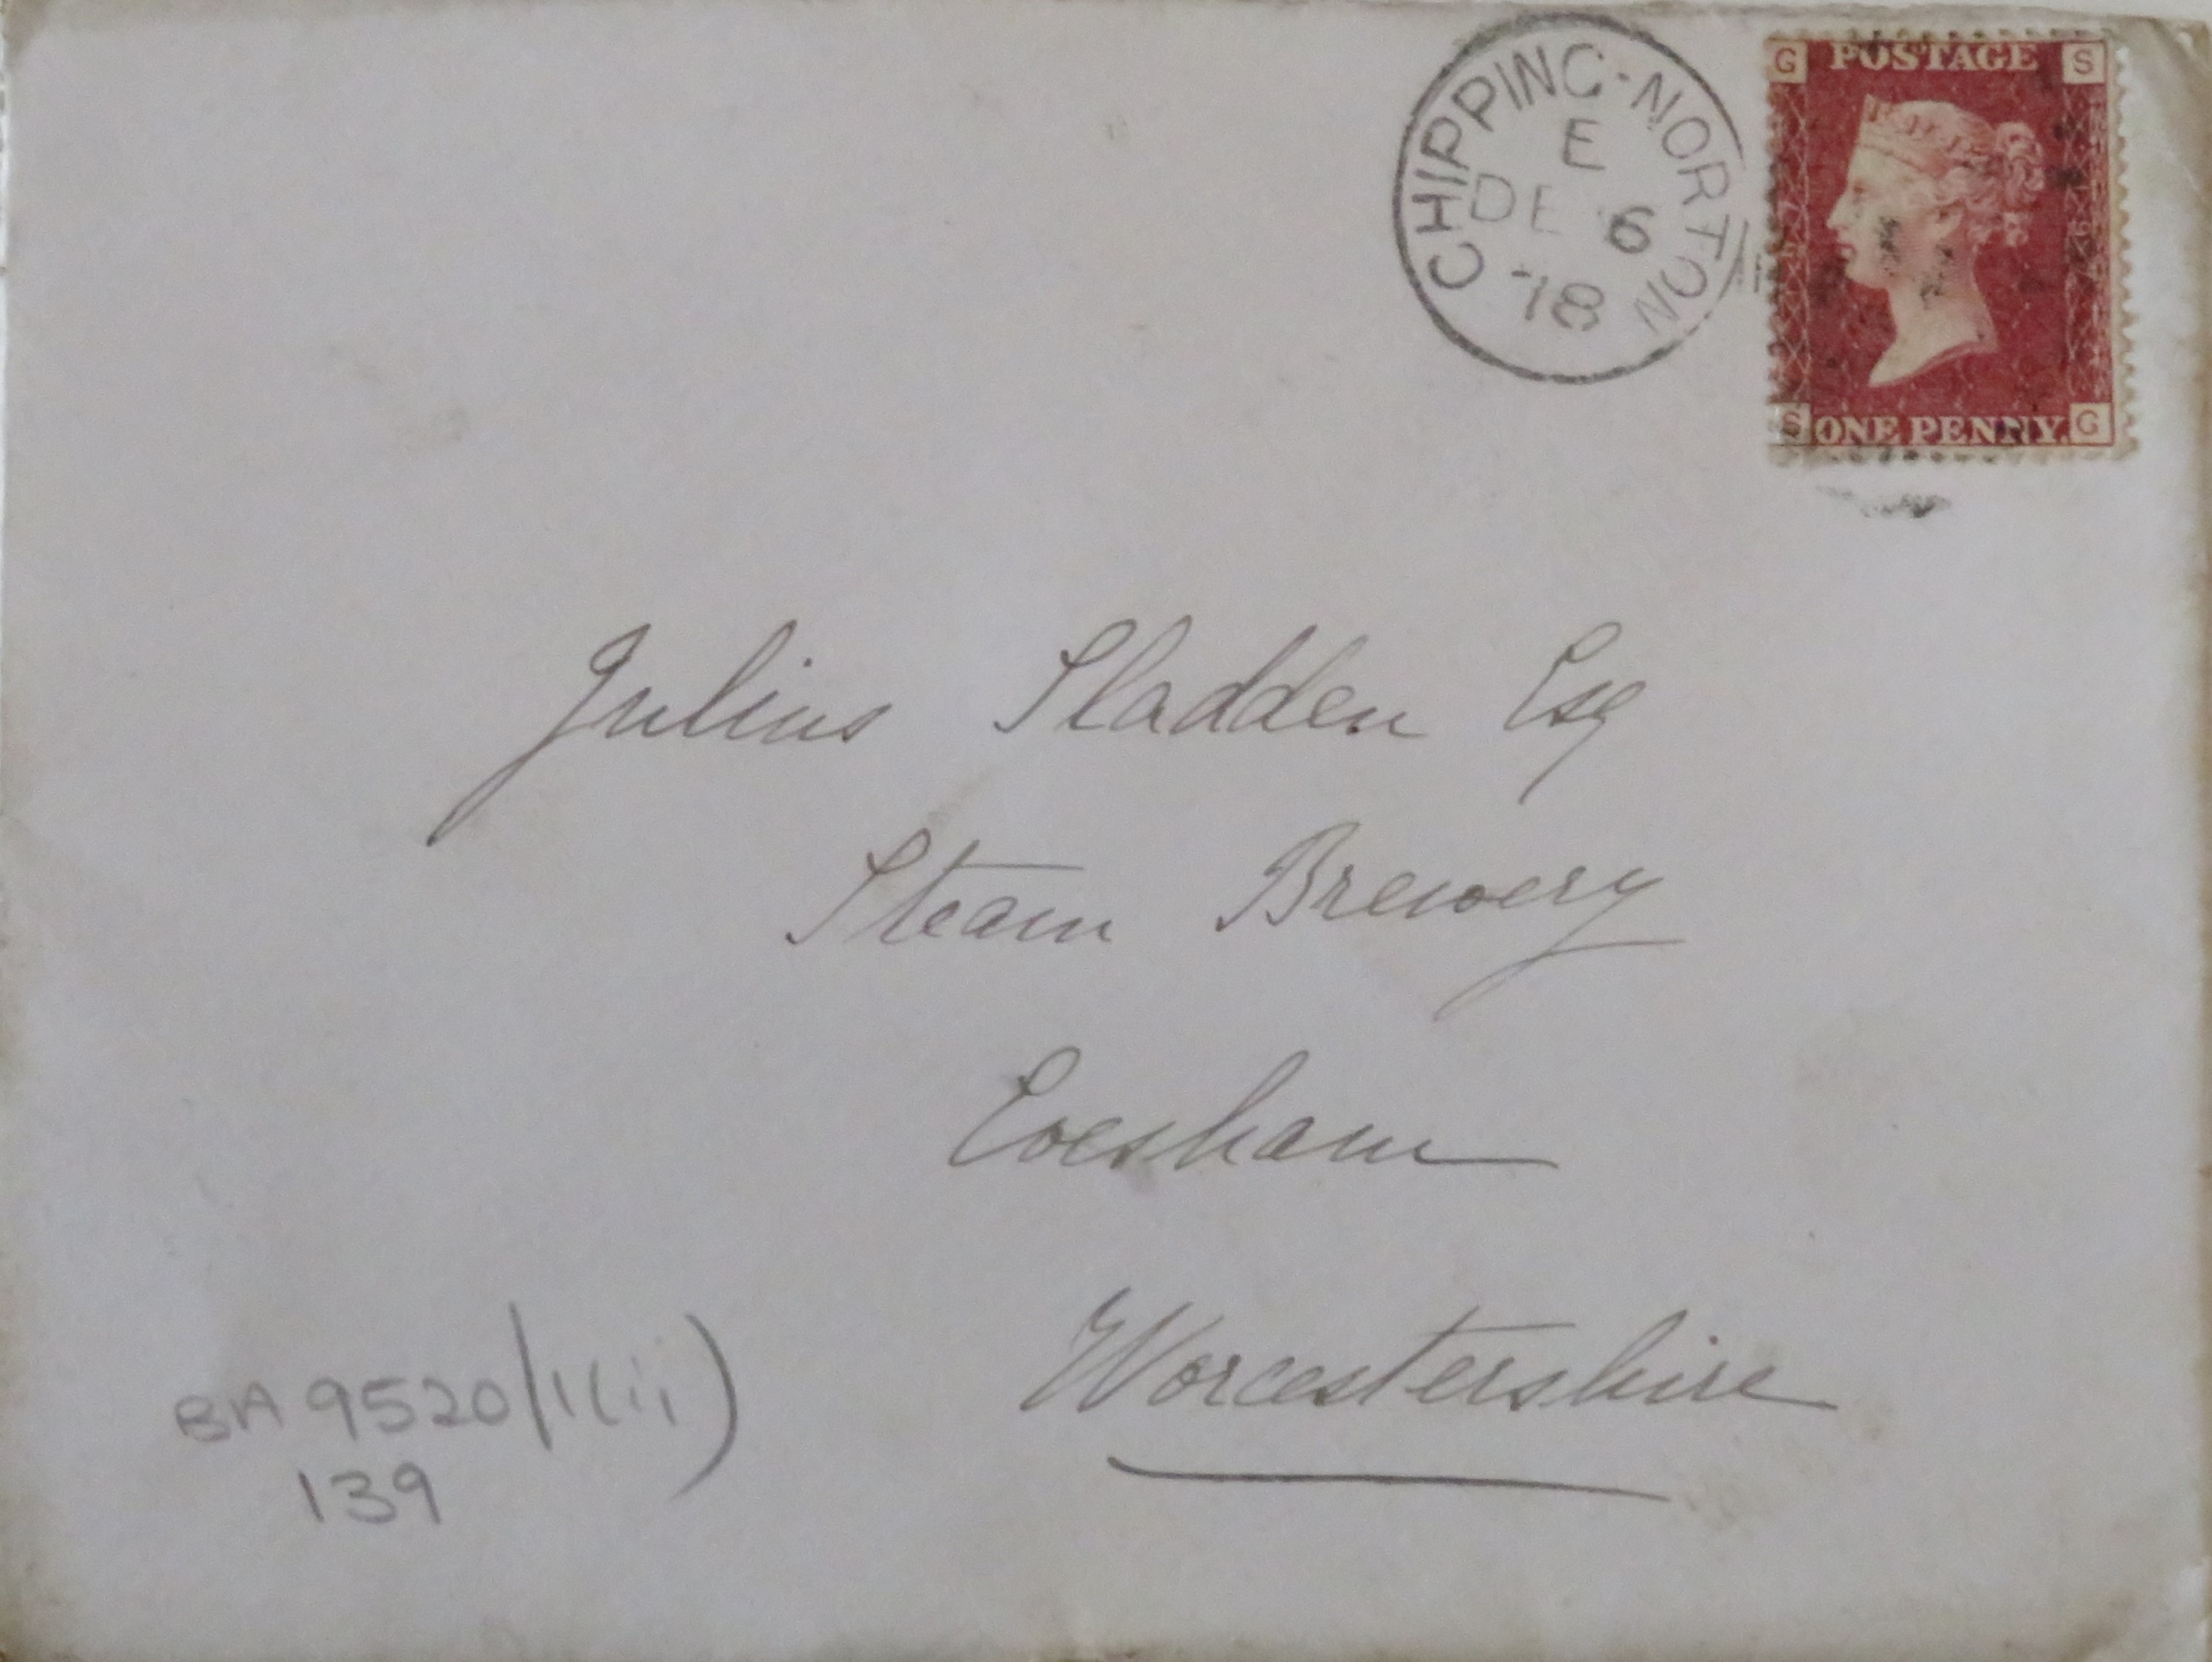 CHIPPING-NORTON
E
DE 6
78
G POSTAGE S
S ONE PENNY. G
Julius Sladden Esq
Steam Brewery
Evesham
Worcestershire
BA 9520/1(ii)
139